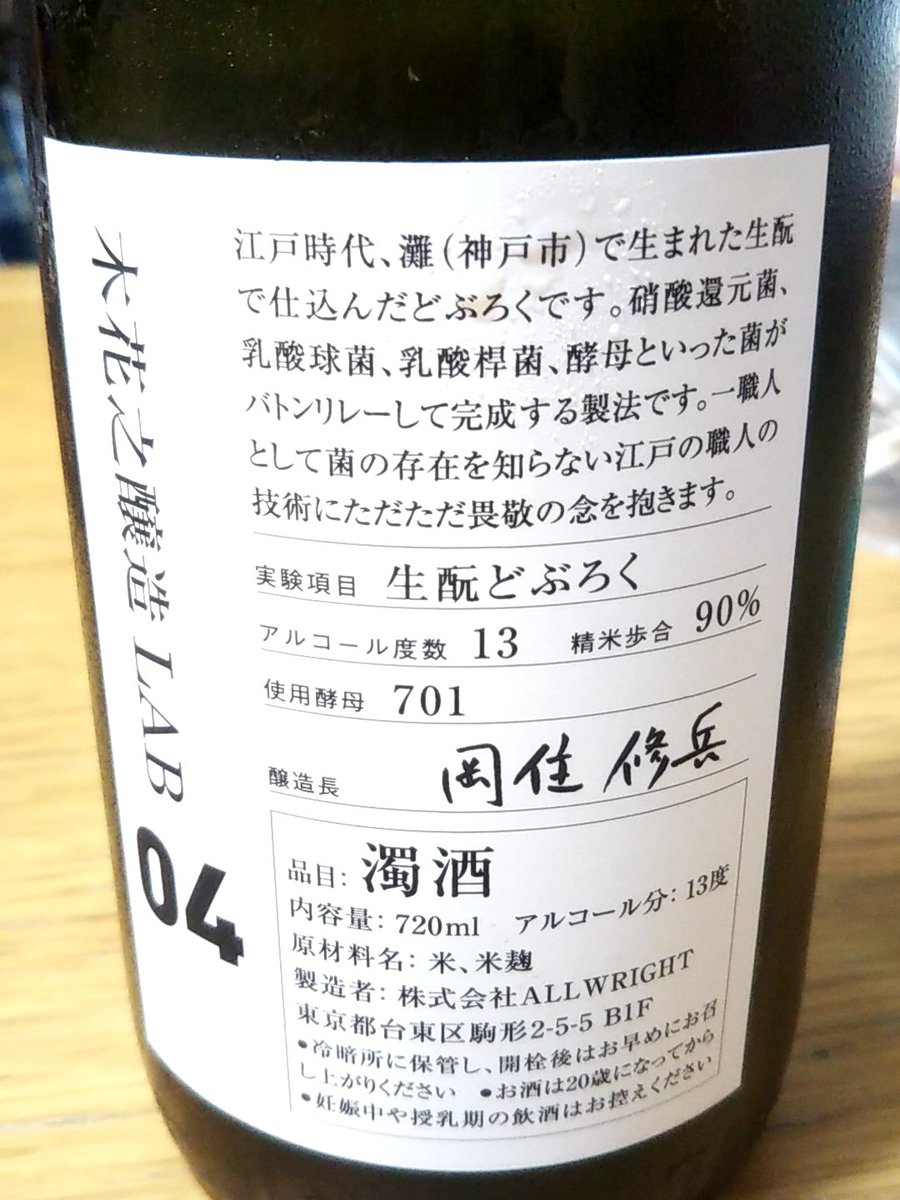 木花之醸造 LAB 04
江戸時代、灘(神戸市)で生まれた生酛
で仕込んだどぶろくです。硝酸還元菌、
乳酸球菌、乳酸桿菌、酵母といった菌が
バトンリレーして完成する製法です。一職人
として菌の存在を知らない江戸の職人の
技術にただただ畏敬の念を抱きます。
実験項目 生酛どぶろく
アルコール度数 13 精米歩合 90%
使用酵母 701
醸造長 岡住 修兵
品目: 濁酒
内容量: 720ml アルコール分: 13度
原材料名: 米、米麹
製造者: 株式会社ALLWRIGHT
東京都台東区駒形2-5-5 B1F
●冷暗所に保管し、開栓後はお早めにお召
し上がりください ●お酒は20歳になってから
●妊娠中や授乳期の飲酒はお控えください